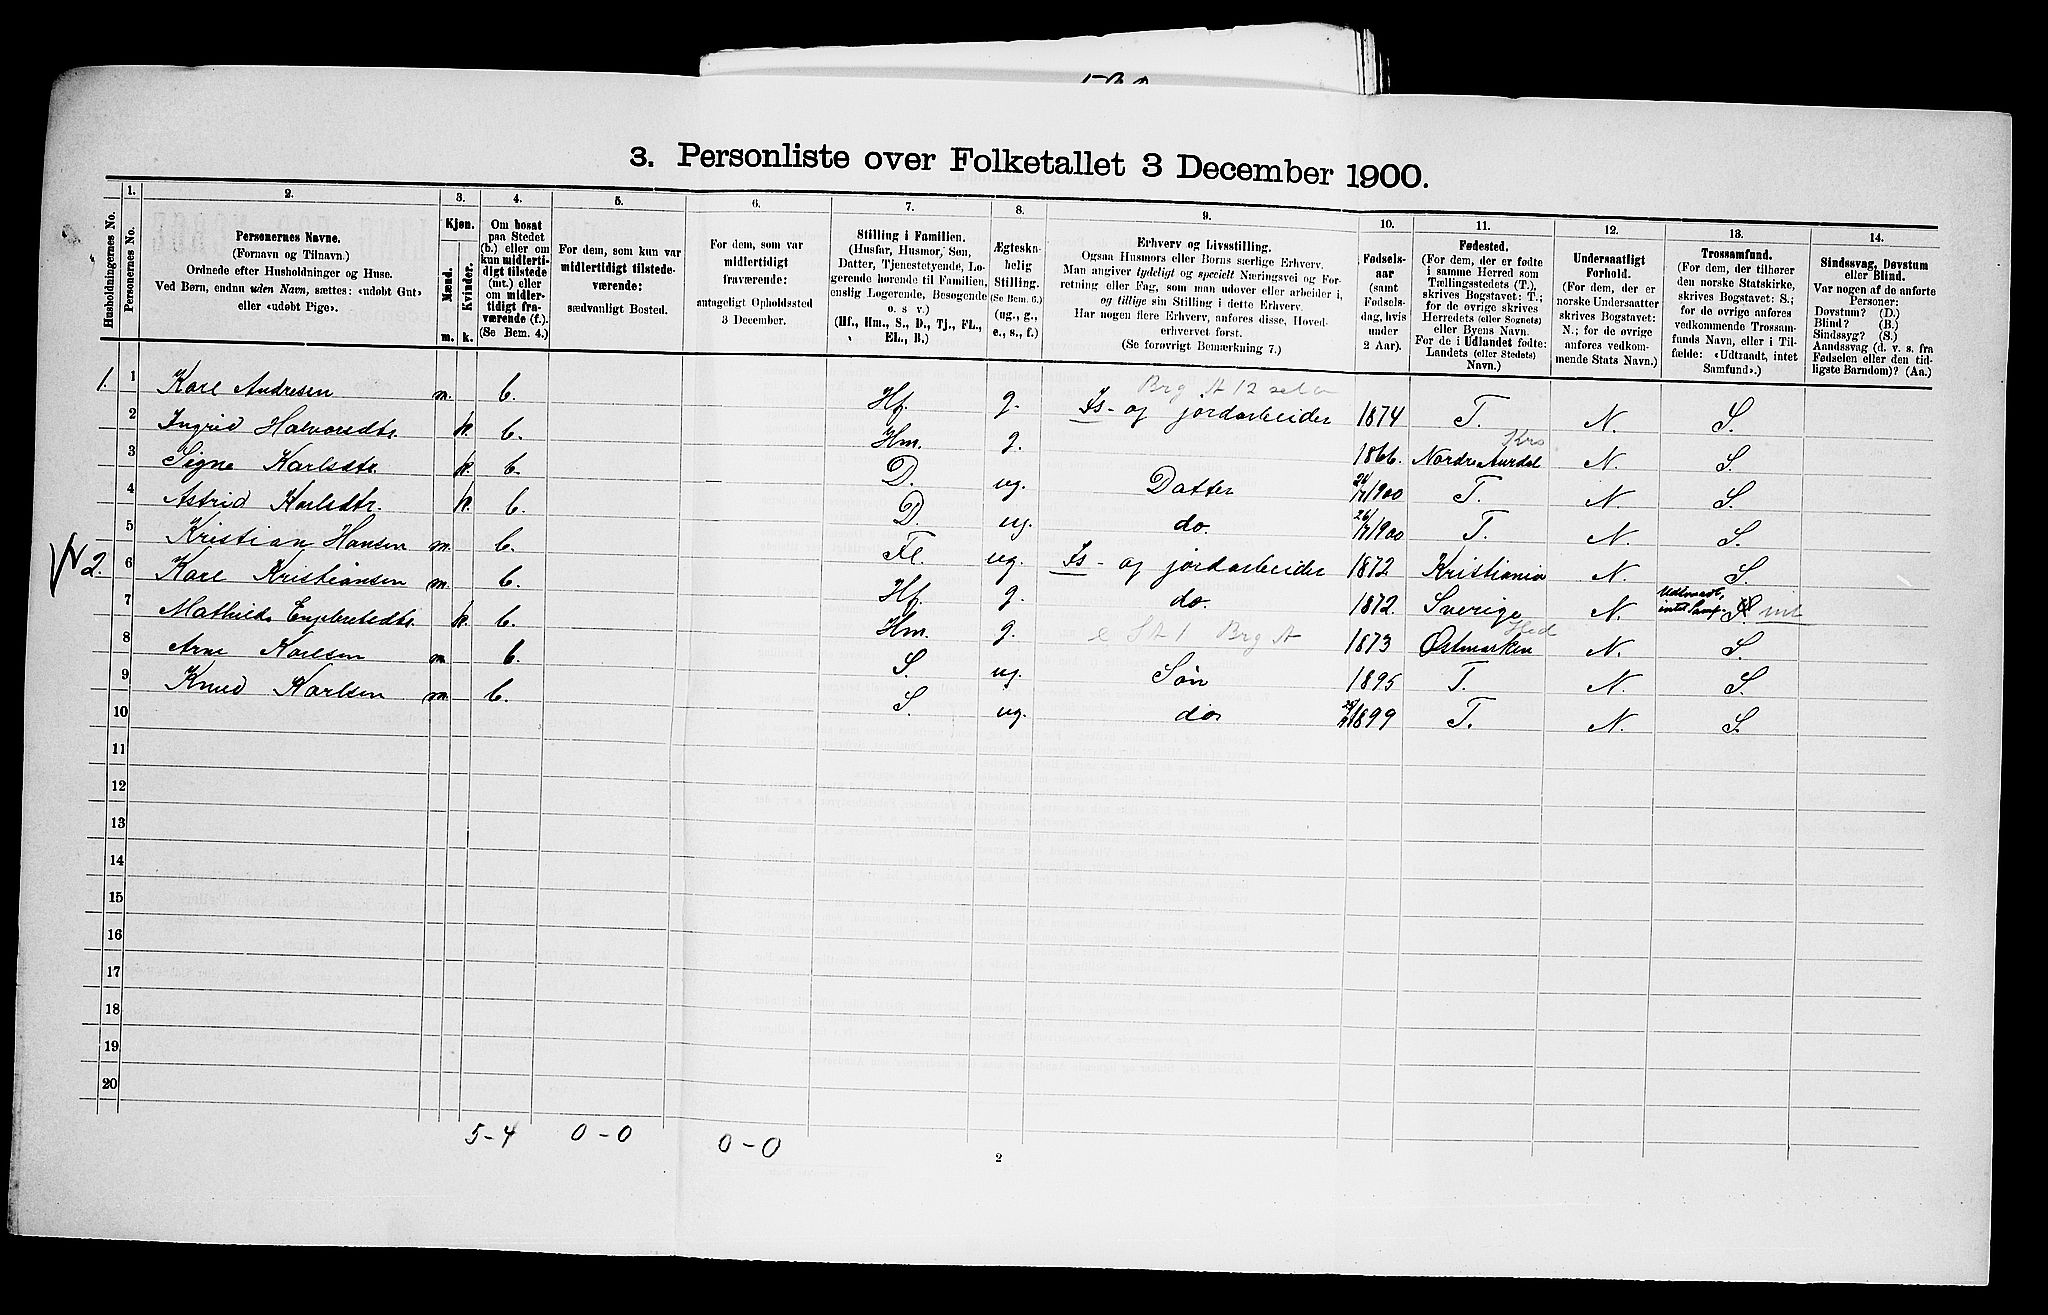 3. Personliste over Folketallet 3 December 1900.
Husholdningernes No.
1. Personernes No.
2. Personernes Navne. (Fornavn og Tilnavn.) Ordnede efter Husholdninger og Huse. Ved Børn, endnu uden Navn, sættes: «udøbt Gut» eller «udøbt Pige».
3. Kjøn. Mænd. Kvinder. m. k.
4. Om bosat paa Stedet (b.) eller om kun midlertidigt tilstede (mt.) eller om midlertidigt fraværende (f.) (Se Bem. 4.)
5. For dem, som kun var midlertidigt tilstedeværende: sædvanligt Bosted.
6. For dem, som var midlertidigt fraværende: antageligt Opholdssted 3 December.
7. Stilling i Familien. (Husfar, Husmor, Søn, Datter, Tjenestetyende, Logerende hørende til Familien, enslig Logerende, Besøgende o. s v.) (Hf., Hm., S., D., Tj., FL., EL., B.)
8. Ægteskabelig Stilling. (Se Bem. 6.) (ug., g., e., s., f.)
9. Erhverv og Livsstilling. Ogsaa Husmors eller Børns særlige Erhverv. Man angiver tydeligt og specielt Næringsvei og Forretning eller Fag, som man udover eller arbeider i, og tillige sin Stilling i dette Erhverv. Har nogen flere Erhverv, anføres disse, Hovederhvervet først. (Se forøvrigt Bemærkning 7.)
10. Fødselsaar (samt Fødselsdag, hvis under 2 Aar).
11. Fødested. (For dem, der er fødte i samme Herred som Tællingsstedets (T.), skrives Bogstavet: T.; for de øvrige skrives Herredets (eller Sognets) eller Byens Navn. For de i Udlandet fødte: Landets (eller Stedets) Navn.)
12. Undersaatligt Forhold. (For dem, der er norske Undersaatter skrives Bogstavet: N.; for de øvrige anføres vedkommende Stats Navn.)
13. Trossamfund. (For dem, der tilhører den norske Statskirke, skrives Bogstavet: S.; for de øvrige anføres vedkommende Trossamfunds Navn, eller i Tilfælde: «Udtraadt, intet Samfund».)
14. Sindssvag, Døvstum eller Blind. Var nogen af de anførte Personer: Døvstum? (D.) Blind? (B.) Sindssyg? (S.) Aandssvag (d. v. s. fra Fødselen eller den tidligste Barndom)? (Aa.)
Brg A 12
1. 1 Karl Andresen m. b. Hf. g. Is- og jordarbeider 1874 T. N. S.
2 Ingrid Halvorsdtr. k. b. Hm. g. 1866. Nordre Aurdal Kro N. S.
3 Signe Karlsdtr. k. b. D. ug. Datter 1900 T. N. S.
4 Astrid Karlsdtr. k. b. D. ug. do. 1900 T. N. S.
5 Kristian Hansen m. b. FL. ug. Is- og jordarbeider 1872 Kristiania N. S.
2. 6 Karl Kristiansen m. b. Hf. g. do. 1872. Sverige N. Udtraadt, intet Samf. S int
7 Mathilde Engebretsdtr. k. b. Hm. g. Brg A 1873 Østmarken Hed N. S.
8 Arne Karlsen m. b. S. ug. Søn 1895 T. N. S.
9 Knud Karlsen m. b. S. ug. do 1899 T. N. S.
10
11
12
13
14
15
16
17
18
19
20
5-4 0-0 0-0
2